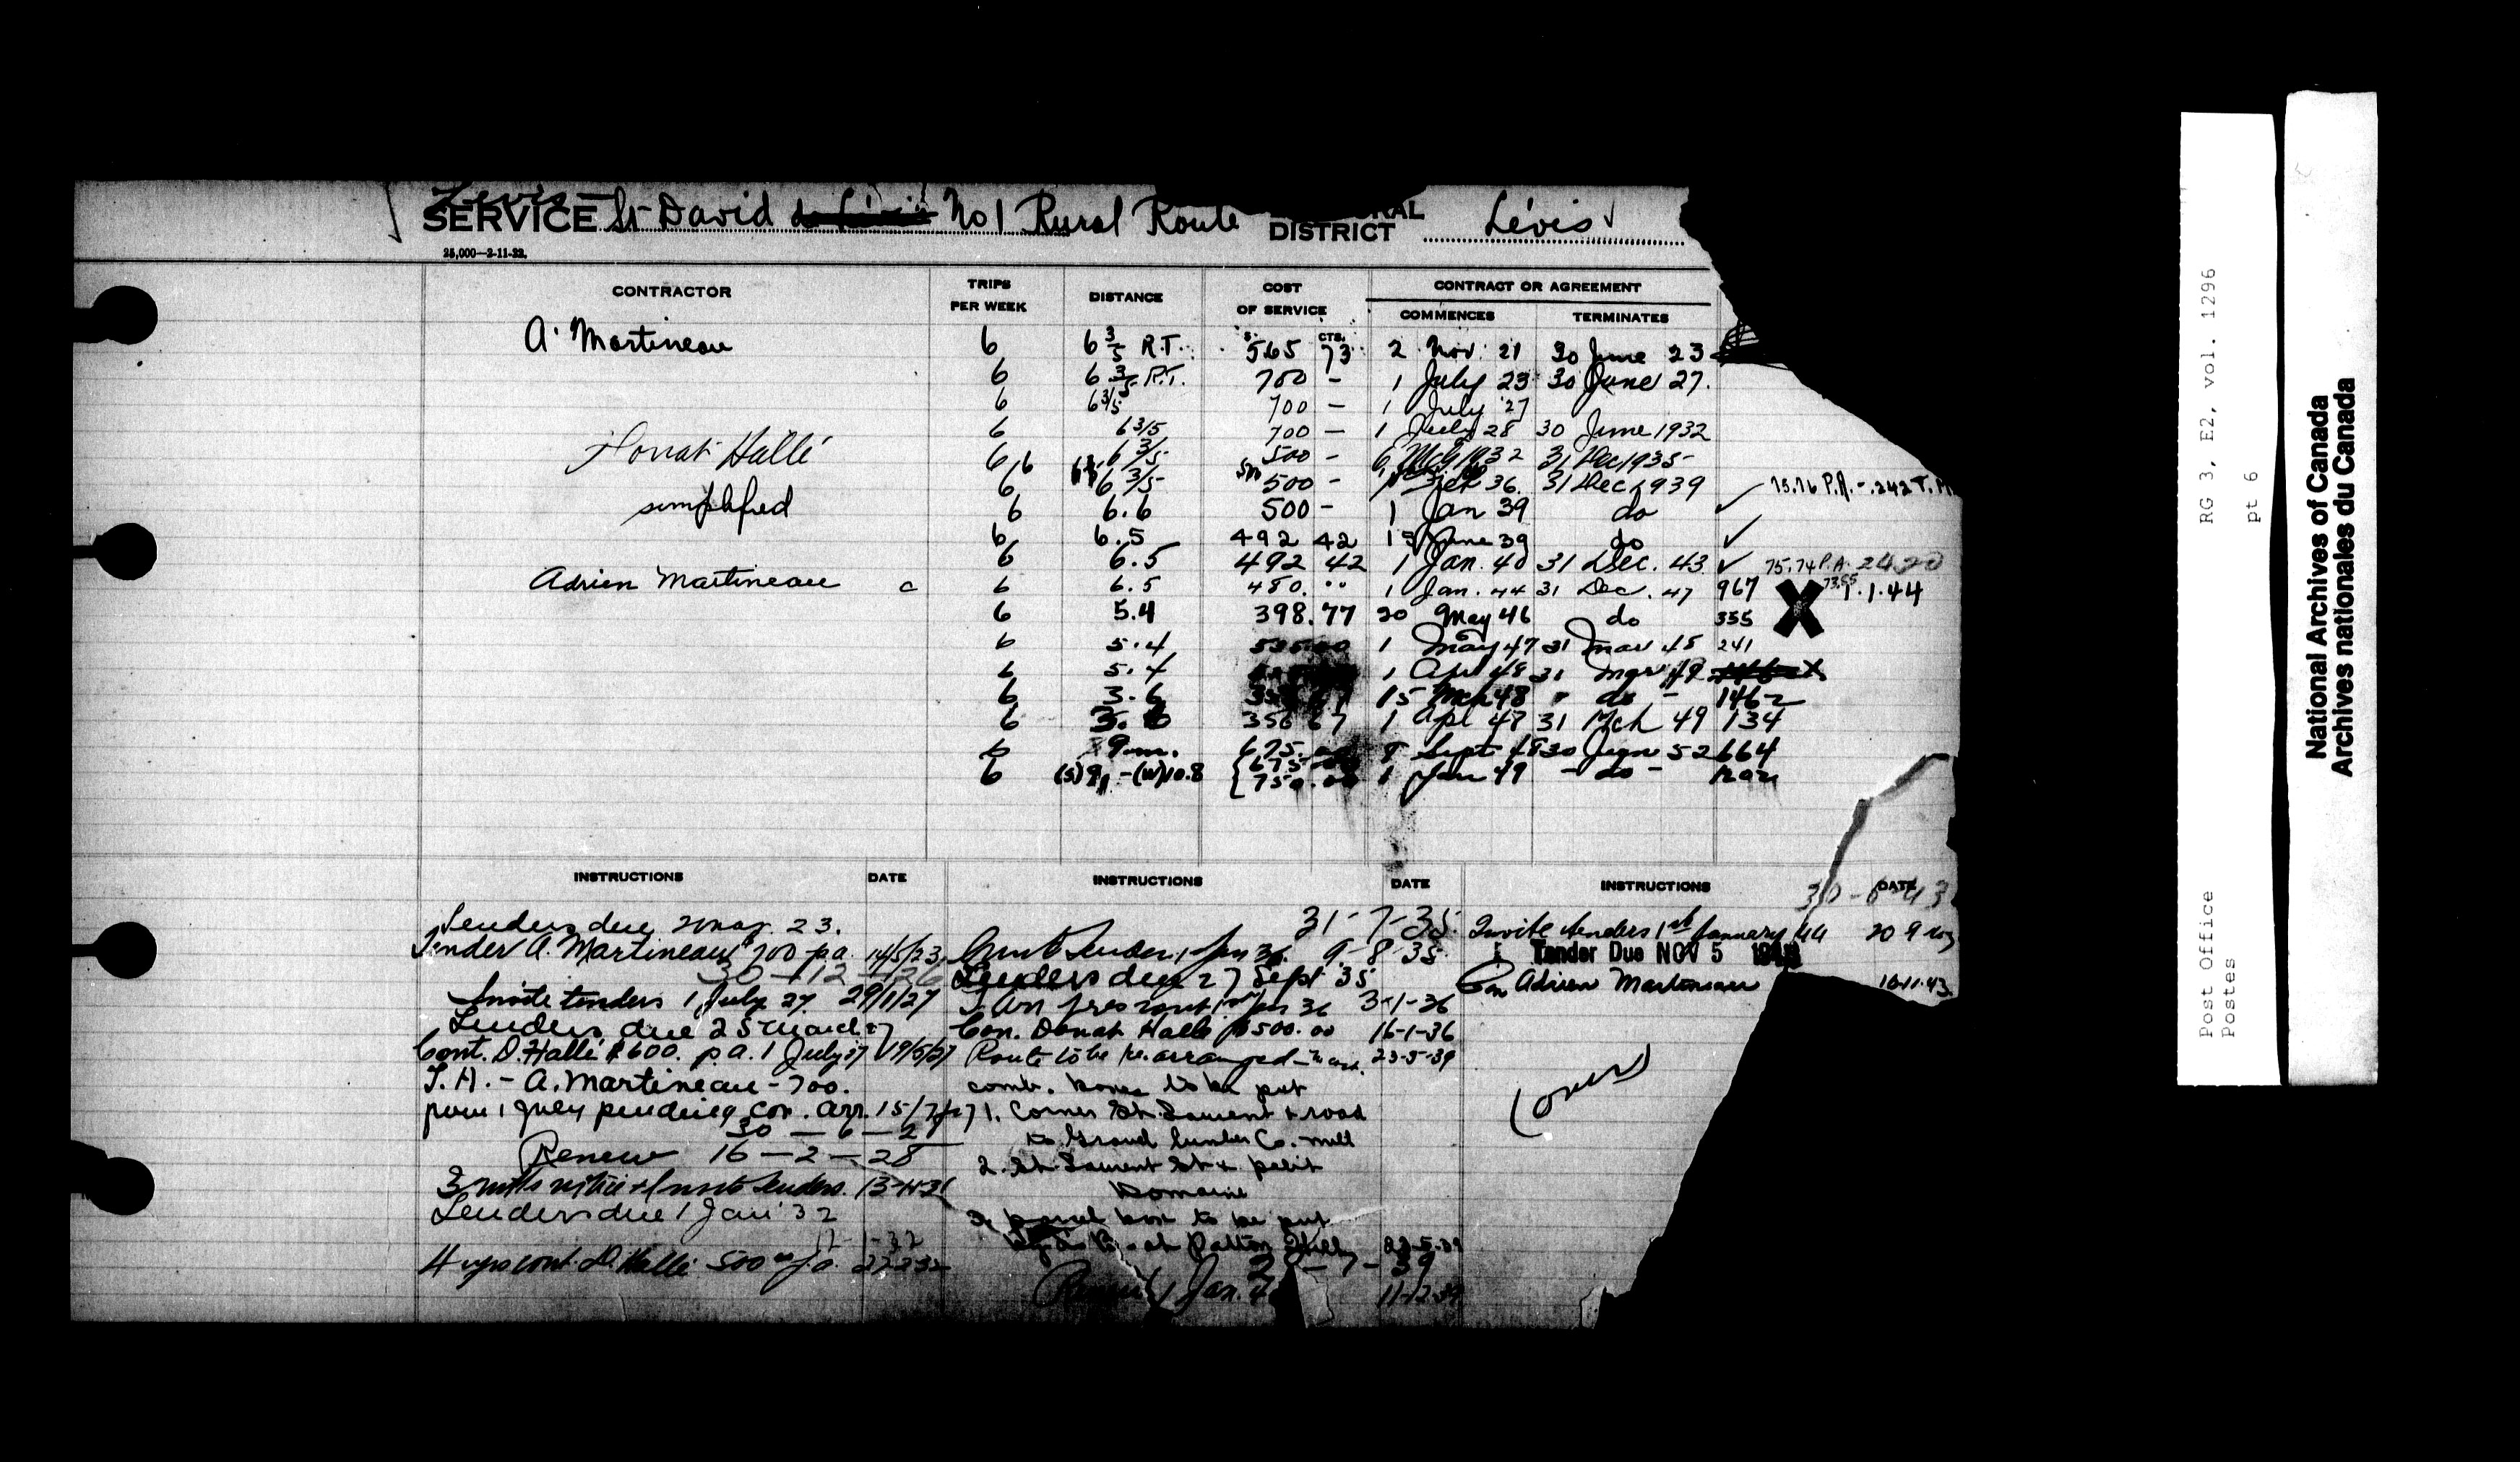 Lévis –
SERVICE St David de Lévis No 1 Rural Route DISTRICT Lévis
25,000—2-11-22.
CONTRACTOR TRIPS PER WEEK DISTANCE COST OF SERVICE CONTRACT OR AGREEMENT
COMMENCES TERMINATES
$ CTS.
A. Martineau 6 6 3/5 R.T. 565 73 2 Nov. 21 30 June 23
6 6 3/5 R.T. 700 – 1 July 23 30 June 27.
6 6 3/5 700 – 1 July 27
6 6 3/5 700 – 1 July 28 30 June 1932
Donat Hallé 6 6 3/5 500 – 6 Mch 1932 31 Dec 1935
6 6 3/5 500 – 1 36. 31 Dec 1939
simplified 6 6.6 500 – 1 Jan 39 do ✓ 75.76 P.A. – .242 T.M
6 6.5 492 42 15 June 39 do ✓
6 6.5 492 42 1 Jan. 40 31 Dec. 43 ✓ 75.74 P.A.
Adrien Martineau c 6 6.5 480. 1 Jan. 44 31 Dec. 47 967 1.44
6 5.4 398.77 20 May 46 do 355 X
6 5.4 1 May 47 31 Mar 48 241
6 5.4 1 Apl 48 31 Mar 49
6 3.6 15 Mch 48 " do – 1462
6 356 67 1 Apl 31 Mch 49 134
6 9 m. 675. Sept 48 30 Jun 52 664
6 (S) 9 – (W) 10.8 { 675 750.00 1 Jan 49 – do –
INSTRUCTIONS DATE INSTRUCTIONS DATE INSTRUCTIONS DATE
Tenders due 2 May 23.
Tender A. Martineau 700 p.a. 14/5/23
30 – 12 – 26
Invite tenders 1 July 27. 29/1/27
Tenders due 25 March 27
Cont. D. Hallé $600. p.a. 1 July 27 19/5/27
T.H. – A. Martineau – 700.
from 1 July pending con. arr. 15/7/27
30 – 6 – 27
Renew 16 – 2 – 28
3 mths notice + Invite tenders.
Tenders due 1 Jan 32
4 yrs cont. D. Hallé 500 p.a.
31-7-35
Invite Tenders 1 Jan 36. 9-8-35
Tenders due 27 Sept 35
1 Jan 36 3-1-36
Con. Donat Hallé $500.00 16-1-36
Route to be re-arranged – 23-5-39
comb. boxes to be put
1. Corner St. Laurent & road
to Grand lumber Co. mill
2. St. Laurent St & petit
Domaine
3. parcel box to be put
at Patton Hill
– 7 – 39
Renew 1 Jan. 11-12-39
30-6-43
Invite tenders 1st January 44 20 9
Tender Due NOV 5
Con Adrien Martineau 10-11-43
(over)
RG 3, E2, vol. 1296
pt 6
Post Office
Postes
National Archives of Canada
Archives nationales du Canada